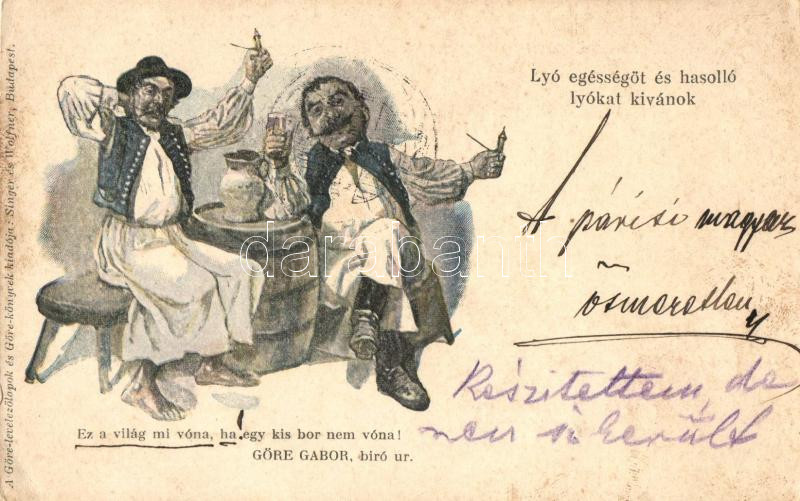 A Göre-levelezőlapok és Göre-könyvek kiadója: Singer és Wolfner, Budapest.
Lyó egésségöt és hasolló
lyókat kivánok
A párisi magyar
ösmeretlen
Készitettem de
nem sikerült
Ez a világ mi vóna, ha egy kis bor nem vóna!
GÖRE GABOR, biró ur.
darabanth